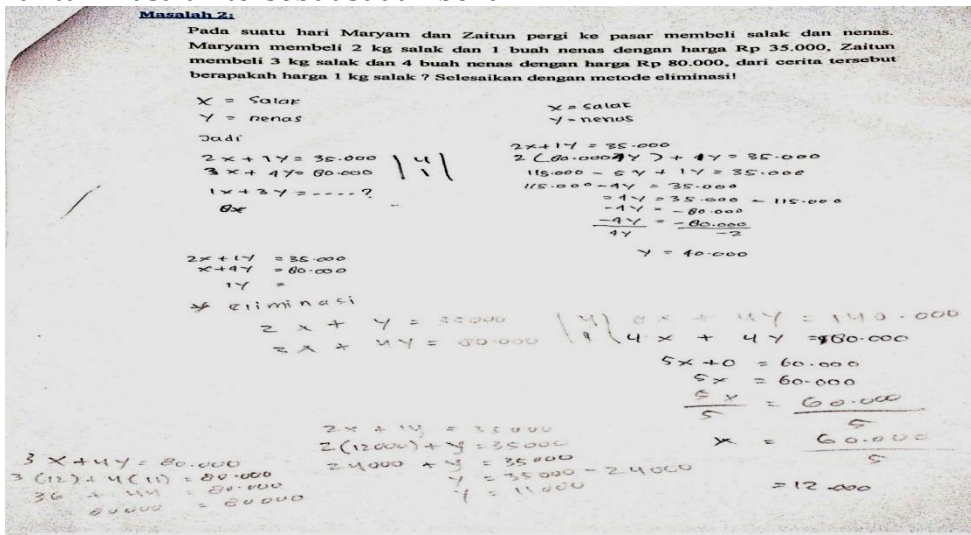 Masalah 2:
Pada suatu hari Maryam dan Zaitun pergi ke pasar membeli salak dan nenas.
Maryam membeli 2 kg salak dan 1 buah nenas dengan harga Rp 35.000, Zaitun
membeli 3 kg salak dan 4 buah nenas dengan harga Rp 80.000, dari cerita tersebut
berapakah harga 1 kg salak ? Selesaikan dengan metode eliminasi!
X = Salak
Y = nenas
Jadi
2x + 1y = 35.000 | 4 |
3x + 4y = 80.000 | 1 |
1x + 3y = ....?
8x
2x + 1y = 35.000
x + 4y = 80.000
1y =
X = salak
Y = nenas
2x + 1y = 35.000
+ 1y = 35.000
115.000 - 5y + 1y = 35.000
115.000 - 4y = 35.000
= 35.000 - 115.000
= -80.000
-80.000
-2
y = 40.000
* Eliminasi
2x + y = 35000 | 4 | 8x + 4y = 140.000
3x + 4y = 80.000 | 1 | x + 4y = 80.000
5x + 0 = 60.000
5x = 60.000
5x = 60.000
5 5
x = 60.000
5
= 12.000
2x + 1y = 35000
2(12000) + y = 35000
24000 + y = 35000
y = 35000 - 24000
y = 11000
3x + 4y = 80.000
3(12) + 4(11) = 80.000
36 + 44 = 80.000
80000 = 80000